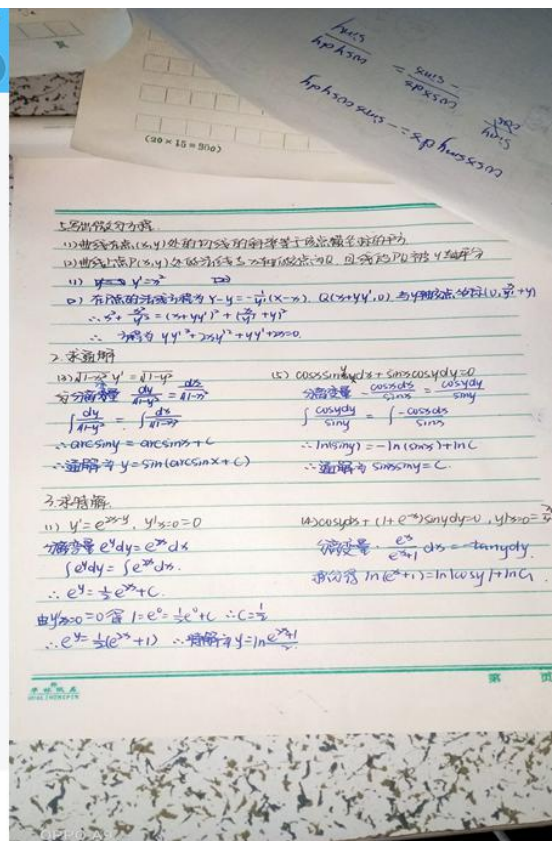 cosx siny dx = -sinx cosy dy
cosxdx / -sinx = cosydy / siny
(20×15=300)
5.写出微分方程.
(1)曲线在点(x,y)处的切线的斜率等于该点横坐标的平方
(2)曲线上点P(x,y)处的法线与x轴的交点为Q,且线段PQ被y轴平分
(1) y'=x²
(2) 在P点的法线方程为 Y-y=-1/y'(X-x), Q(x+yy',0)
2.求通解
(3) √1-x² y'=√1-y²
分离变量 dy/√1-y² = dx/√1-x²
∫dy/√1-y² = ∫dx/√1-x²
∴arcsiny=arcsinx+C
∴通解为y=sin(arcsinx+C)
(5) cosxsinydx+sinxcosydy=0
分离变量 -cosxdx/sinx = cosydy/siny
∫cosydy/siny = ∫-cosxdx/sinx
∴ln(siny)=-ln(sinx)+lnC
∴通解为sinxsiny=C.
3.求特解.
(1) y'=e^2x-y, y|x=0=0
分离变量 e^y dy=e^2x dx
∫e^y dy=∫e^2x dx.
∴e^y=½e^2x+C.
由y|x=0=0得 1=e^0=½e^0+C ∴C=½
∴e^y=½(e^2x+1) ∴特解为y=ln e^2x+1/2
(4)cosydx+(1+e^-x)sinydy=0, y|x=0=
分离变量. e^x/e^x+1 dx=-tanydy.
积分得 ln(e^x+1)=ln|cosy|+lnC₁
第 页
OPPO A9